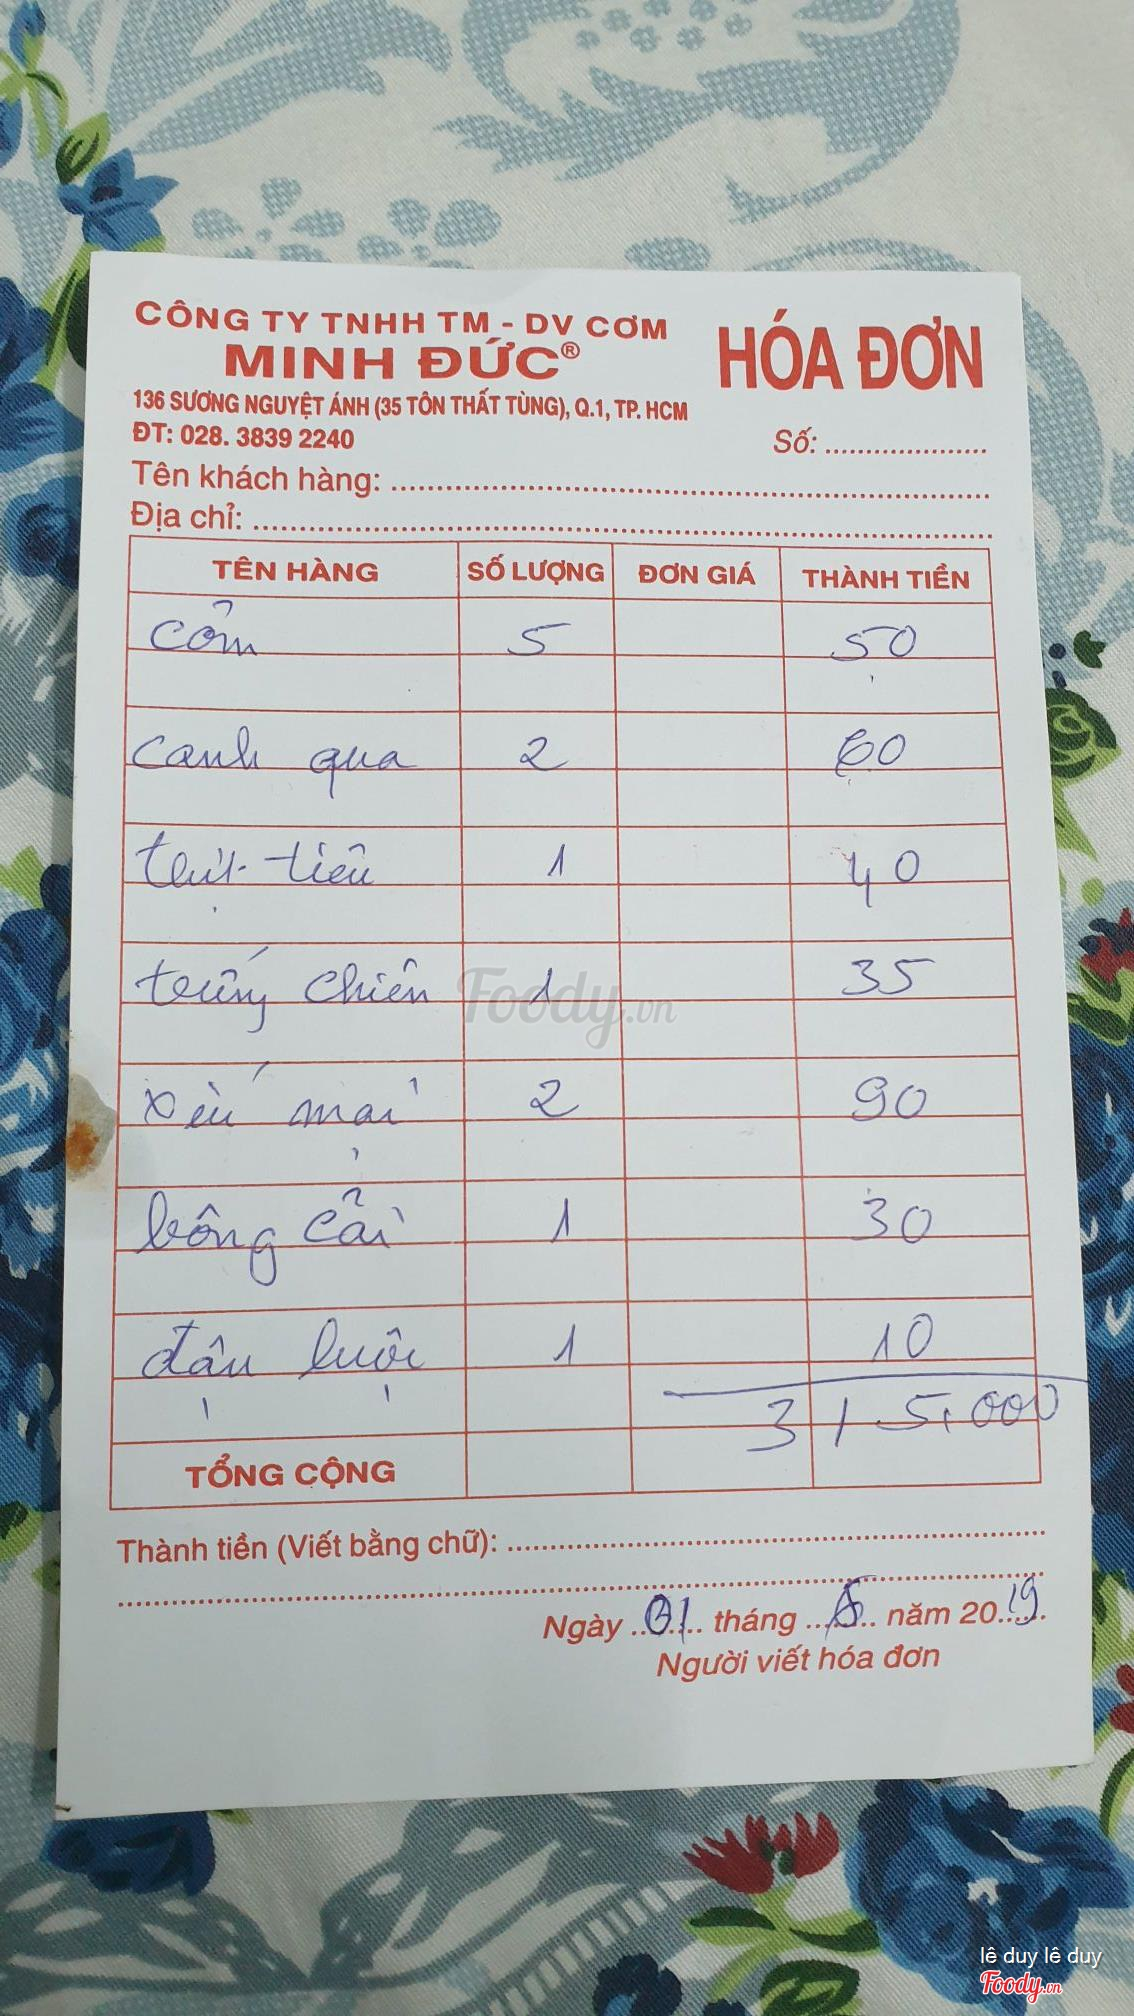 CÔNG TY TNHH TM - DV CƠM
MINH ĐỨC®
HÓA ĐƠN
136 SƯƠNG NGUYỆT ÁNH (35 TÔN THẤT TÙNG), Q.1, TP. HCM
ĐT: 028. 3839 2240
Số: ....................
Tên khách hàng: ....................
Địa chỉ: ....................
TÊN HÀNG SỐ LƯỢNG ĐƠN GIÁ THÀNH TIỀN
cơm 5 50
canh qua 2 60
thịt tiêu 1 40
trứng chiên 1 35
xíu mại 2 90
bông cải 1 30
đậu luộc 1 10
315.000
TỔNG CỘNG
Thành tiền (Viết bằng chữ): ....................
Ngày 01 tháng năm 2019
Người viết hóa đơn
Foody.vn
lê duy lê duy
Foody.vn